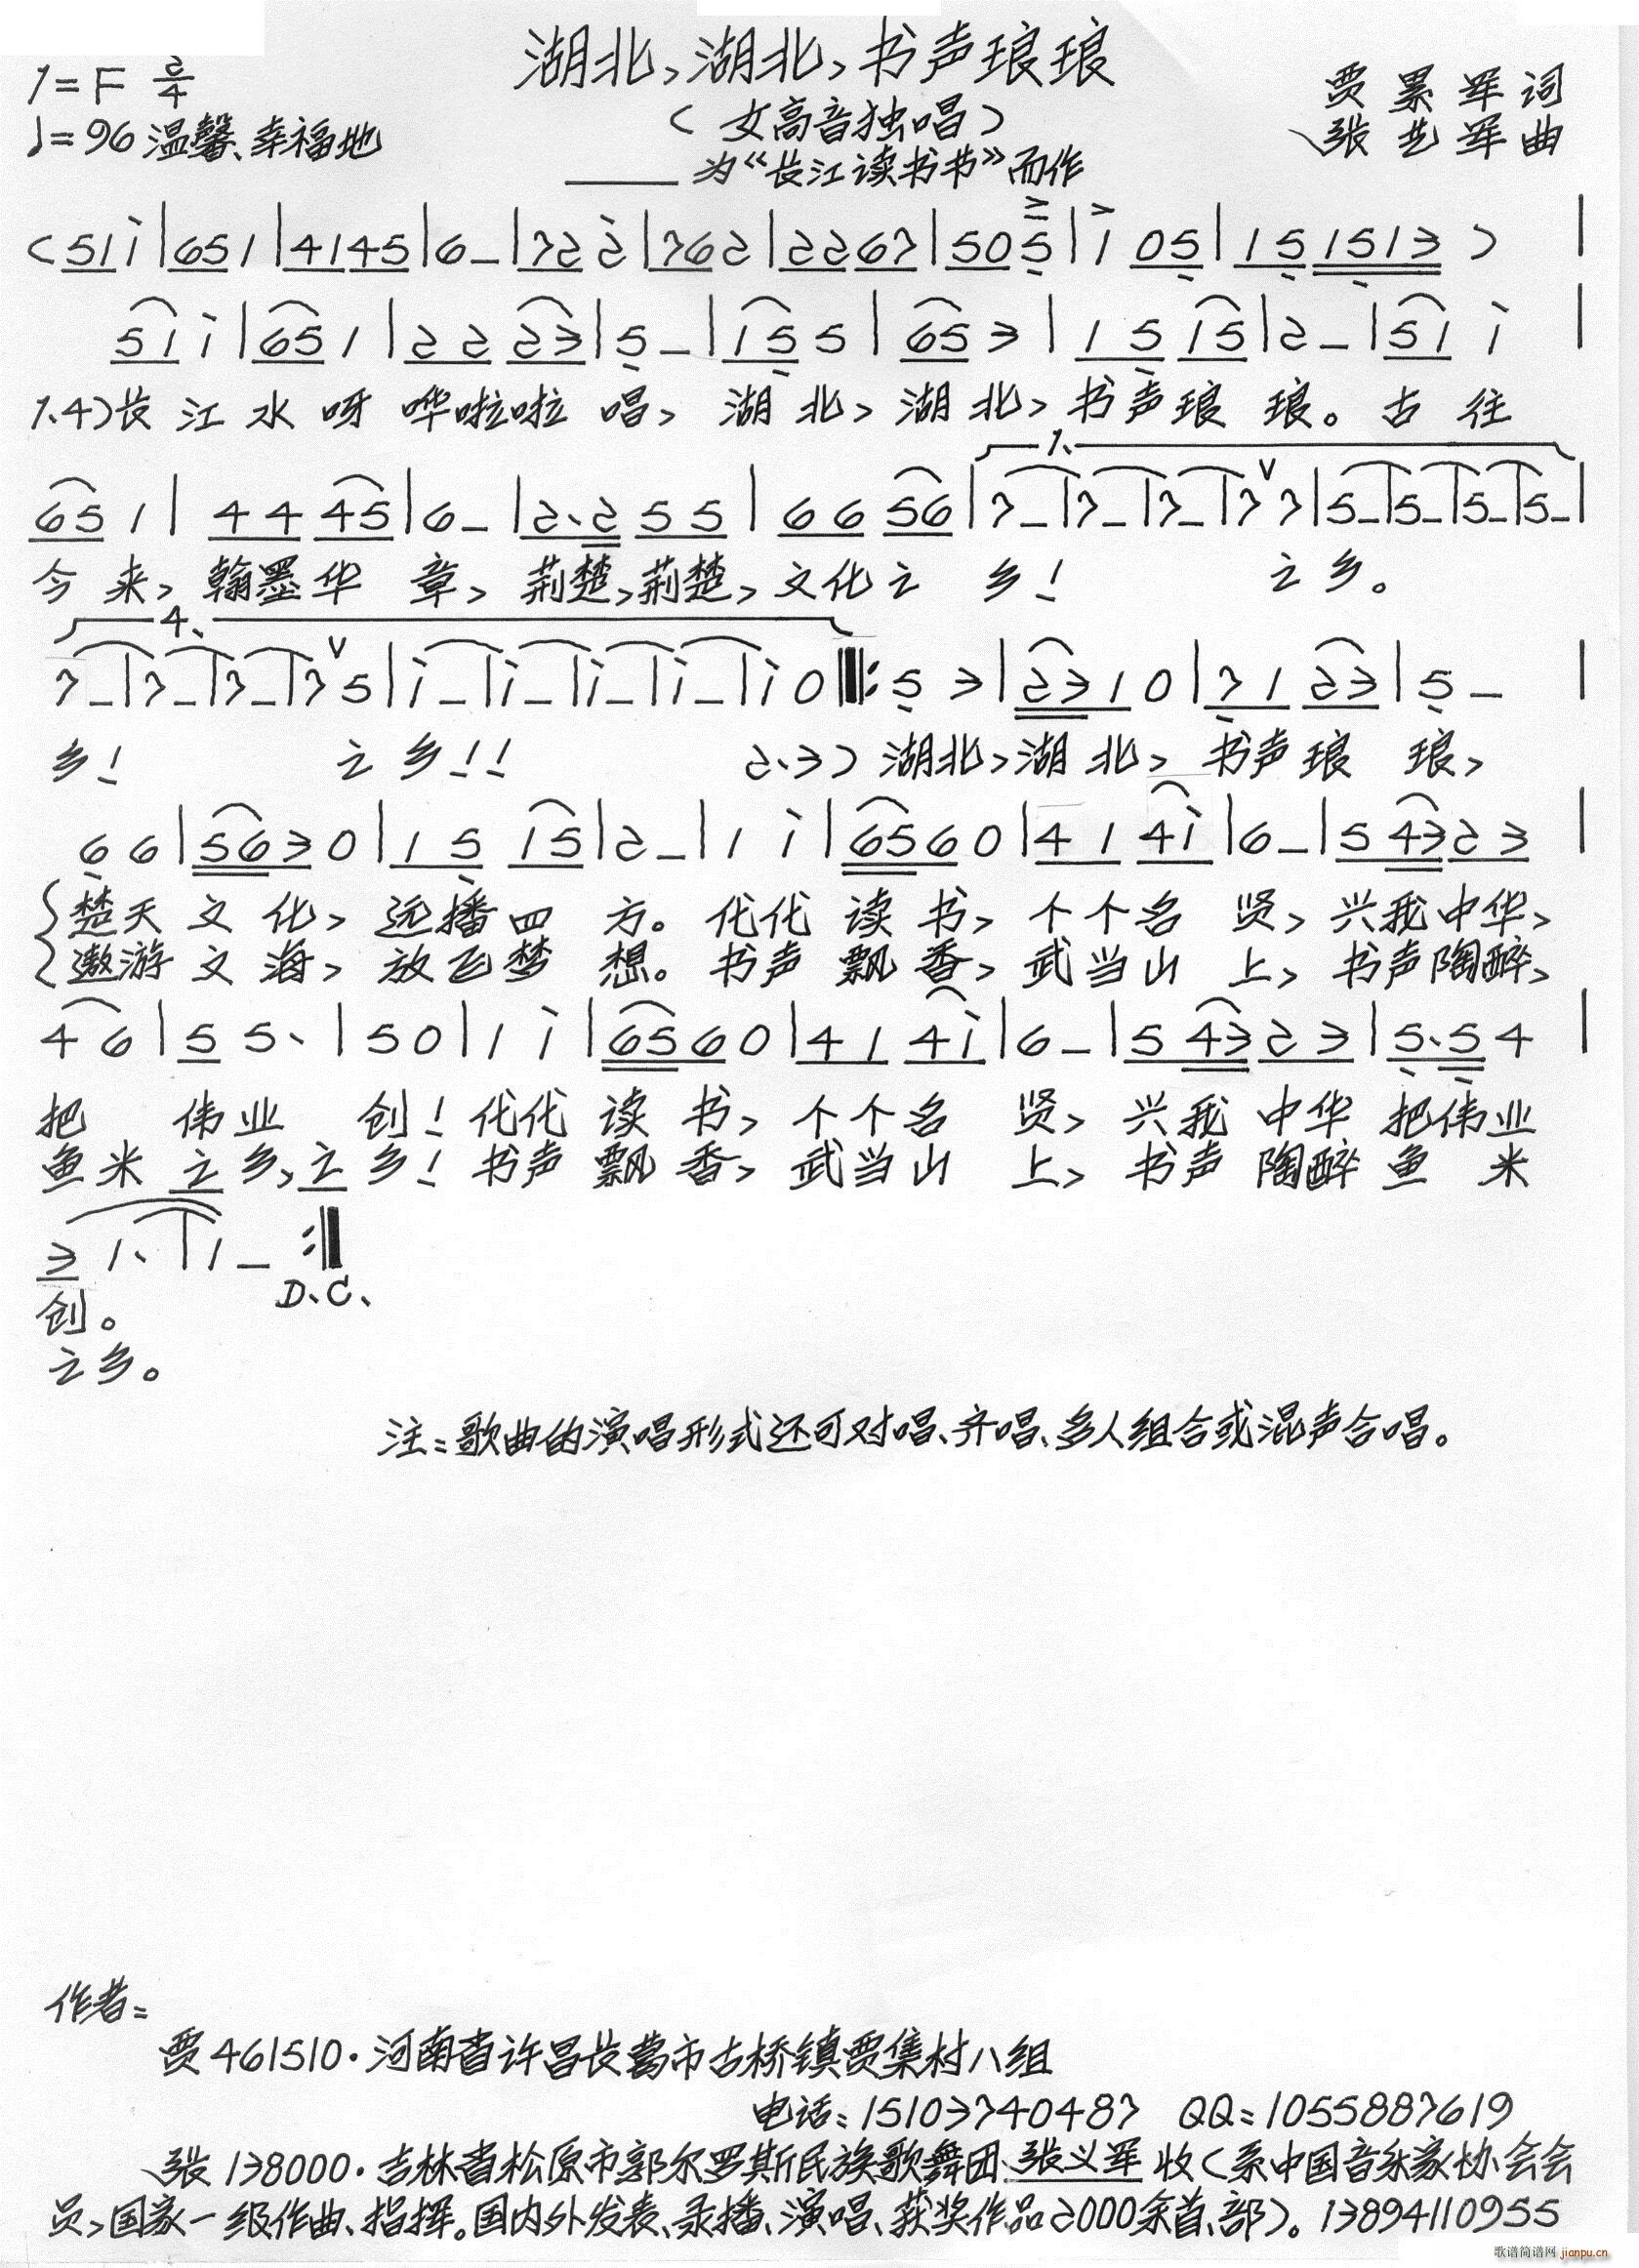 湖北,湖北,书声琅琅
1=F 2/4
贾累军词
♩=96 温馨、幸福地
(女高音独唱)
张艺军曲
——为“长江读书节”而作
(51i|651|4145|6-|722|762|2267|505|i 05|151513)|
51i|651|2223|5-|155|653|1515|2-|51i|
1.4)长江水呀哗啦啦唱,湖北,湖北,书声琅琅。古往
1.
651|4445|6-|2.255|6656|7-|7-|7-|7 7|5-|5-|5-|5-|
今来,翰墨华章,荆楚,荆楚,文化之乡!之乡。
4.
7-|7-|7-|7 5|i-|i-|i-|i-|i 0‖:5 3|2310|7123|5-|
乡!之乡!!2.3)湖北,湖北,书声琅琅,
66|5630|1515|2-|1i|6560|414i|6-|54323|
楚天文化,远播四方。代代读书,个个名贤,兴我中华,
遨游文海,放飞梦想。书声飘香,武当山上,书声陶醉,
46|55.|50|1i|6560|414i|6-|54323|5.54|
把伟业创!代代读书,个个名贤,兴我中华把伟业
鱼米之乡,之乡!书声飘香,武当山上,书声陶醉鱼米
3 1.|1-:‖
D.C.
创。
之乡。
注:歌曲的演唱形式还可对唱、齐唱、多人组合或混声合唱。
作者:
贾461510·河南省许昌长葛市古桥镇贾集村八组
电话:15103740487 QQ:1055887619
张138000·吉林省松原市郭尔罗斯民族歌舞团张义军收(系中国音乐家协会会
员,国家一级作曲、指挥。国内外发表、录播、演唱、获奖作品2000余首、部)。13894110955
歌谱简谱网 jianpu.cn